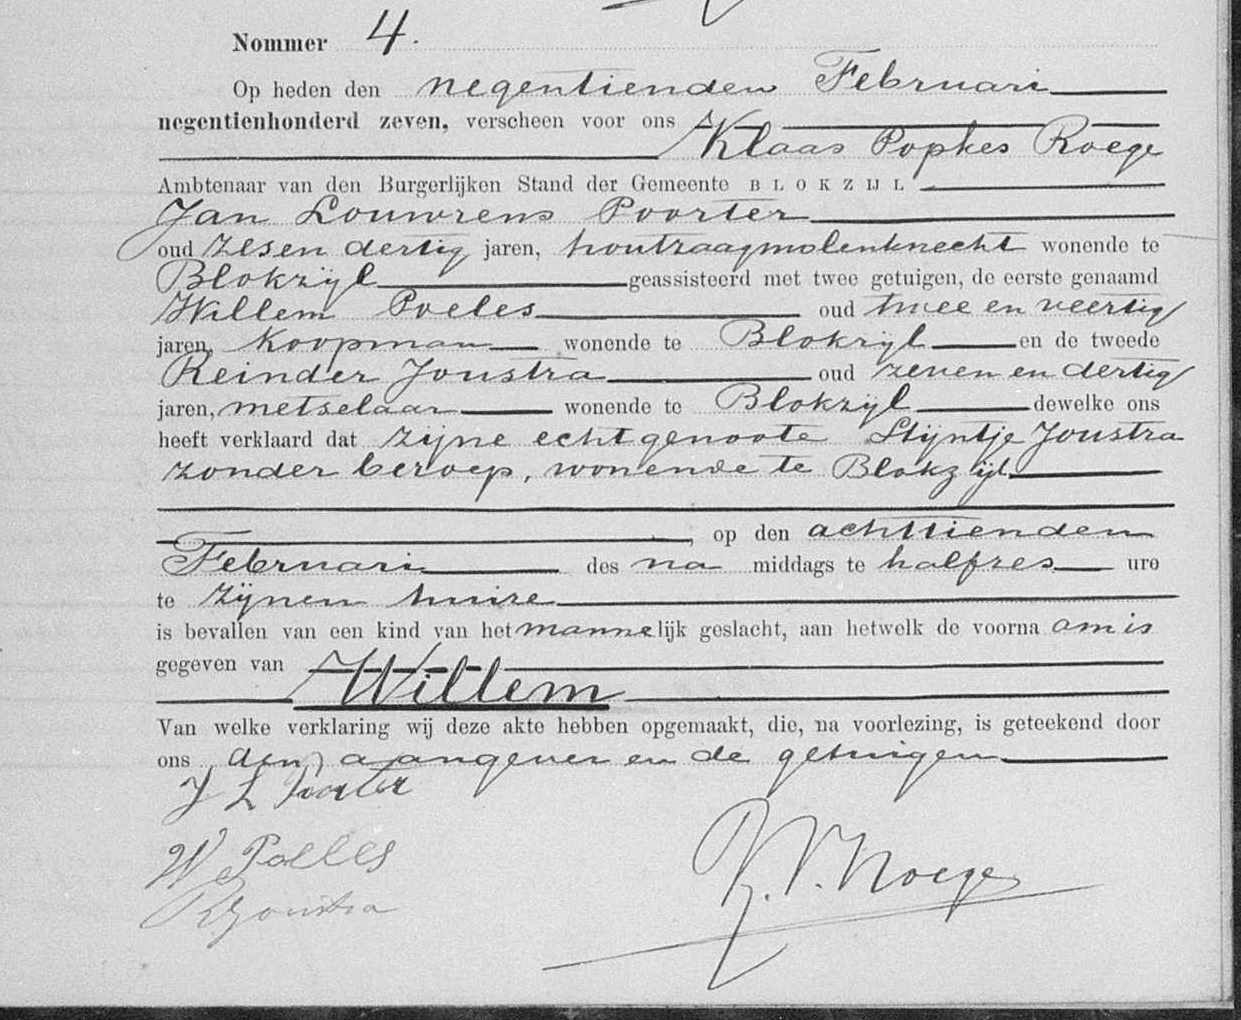 Nommer 4.
Op heden den negentienden Februari
negentienhonderd zeven, verscheen voor ons
Klaas Popkes Roege
Ambtenaar van den Burgerlijken Stand der Gemeente BLOKZIJL
Jan Louwrens Poorter
oud zesen dertig jaren, houtzaagmolenknecht wonende te
Blokzijl geassisteerd met twee getuigen, de eerste genaamd
Willem Poeles oud twee en veertig
jaren, koopman wonende te Blokzijl en de tweede
Reinder Joustra oud zeven en dertig
jaren, metselaar wonende te Blokzijl dewelke ons
heeft verklaard dat zijne echtgenoote Stijntje Joustra
zonder beroep, wonende te Blokzijl
, op den achttienden
Februari des na middags te halfzes ure
te zijnen huize
is bevallen van een kind van het mannelijk geslacht, aan hetwelk de voornaam is
gegeven van
Willem
Van welke verklaring wij deze akte hebben opgemaakt, die, na voorlezing, is geteekend door
ons den aangever en de getuigen
J L Poorter
W Poeles
R Joustra
K. P. Roege